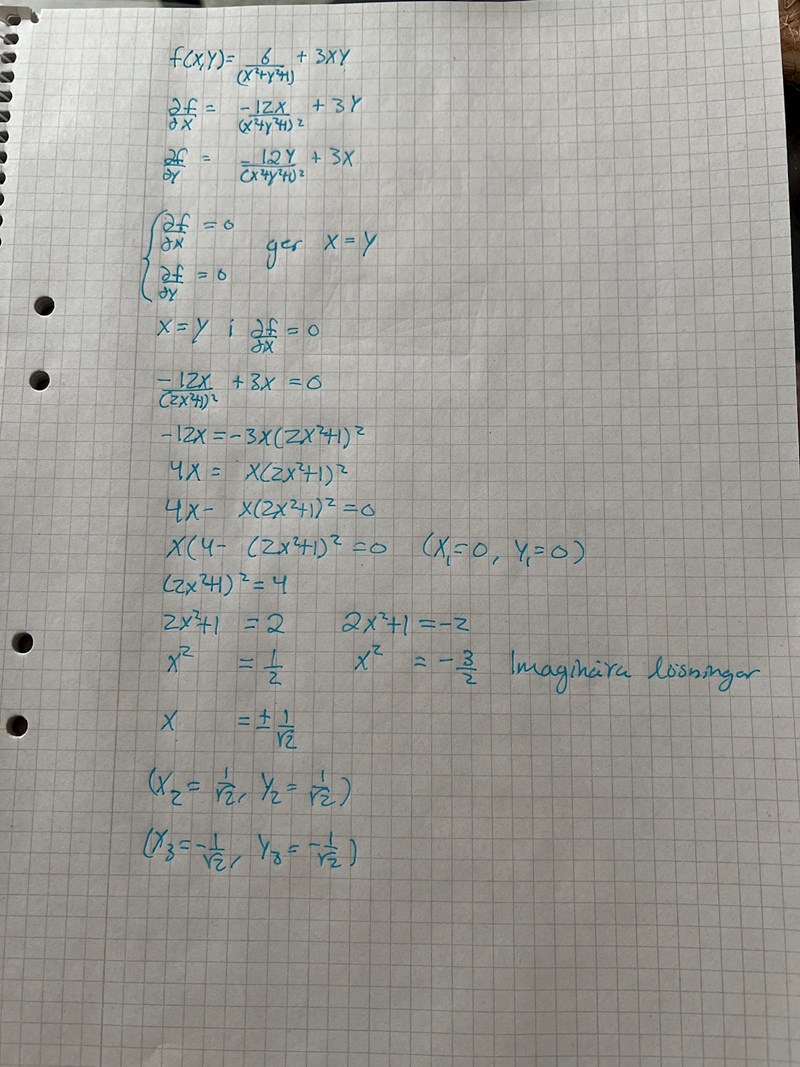 f(x,y) = 6/(x²+y²+1) + 3xy
∂f/∂x = -12x/(x²+y²+1)² + 3y
∂f/∂y = -12y/(x²+y²+1)² + 3x
{ ∂f/∂x = 0
∂f/∂y = 0 ger x = y
x = y i ∂f/∂x = 0
-12x/(2x²+1)² + 3x = 0
-12x = -3x(2x²+1)²
4x = x(2x²+1)²
4x - x(2x²+1)² = 0
x(4 - (2x²+1)² = 0 (x₁=0, y₁=0)
(2x²+1)² = 4
2x²+1 = 2 2x²+1 = -2
x² = 1/2 x² = -3/2 Imaginära lösningar
x = ± 1/√2
(x₂ = 1/√2, y₂ = 1/√2)
(x₃ = -1/√2, y₃ = -1/√2)